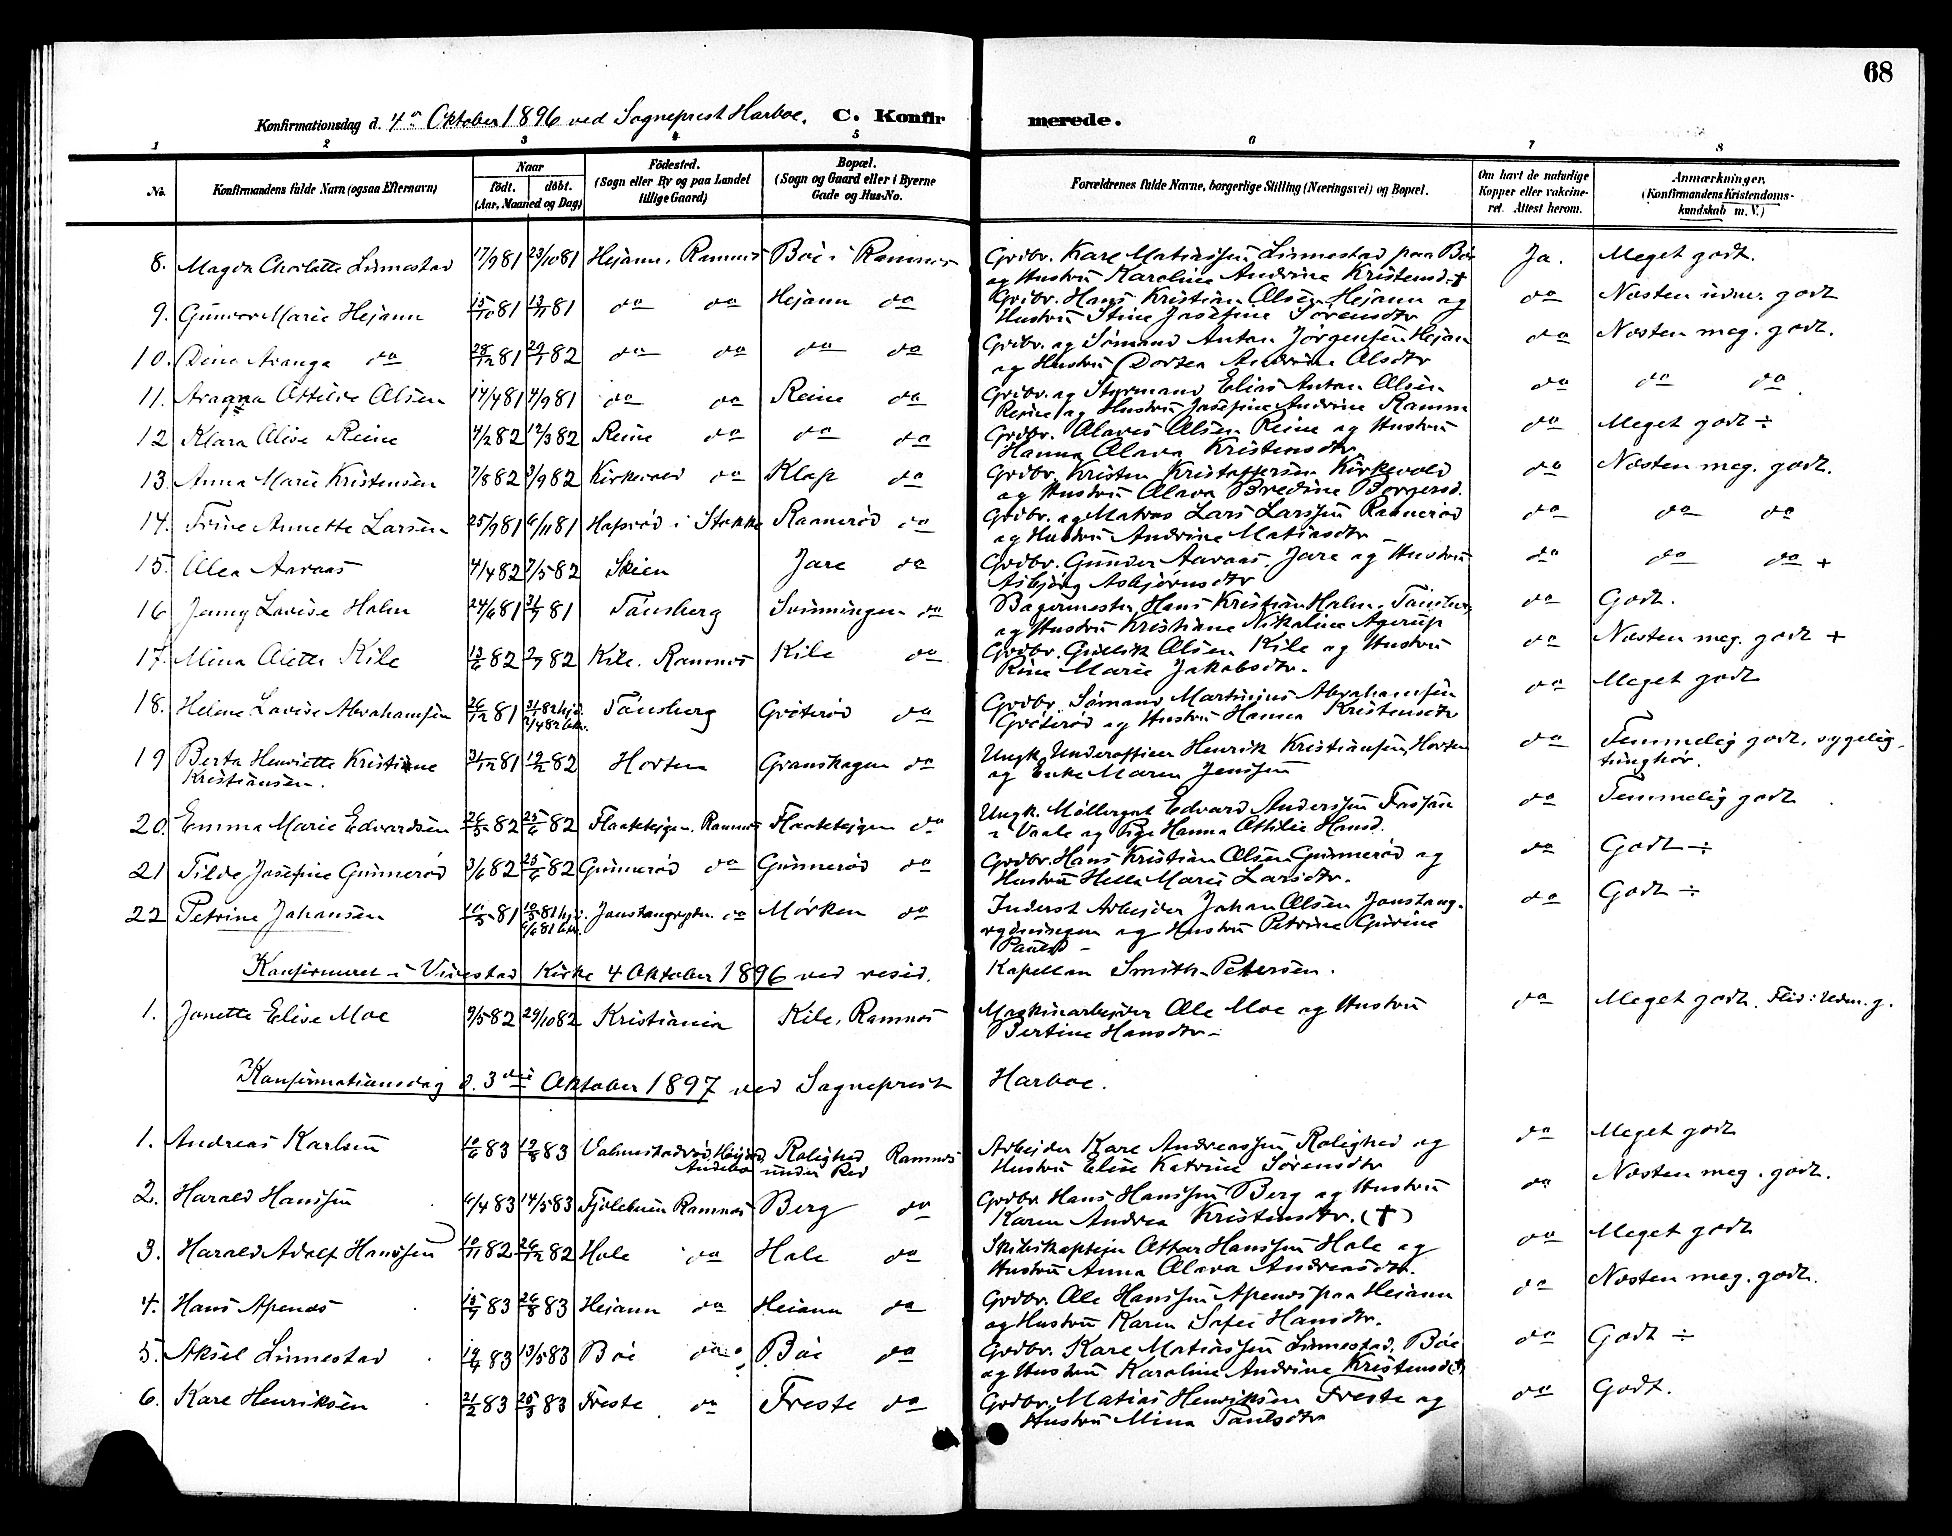 68
Konfirmationsdag d. 4de Oktober 1896 ved Sogneprest Harboe. C. Konfirmerede.
1 2 3 4 5 6 7 8
No. Konfirmandens fulde Navn (ogsaa Efternavn) Naar født. døbt. (Aar, Maaned og Dag) Fødested. (Sogn eller By og paa Landet tillige Gaard) Bopæl. (Sogn og Gaard eller i Byerne Gade og Hus-No. Forældrenes fulde Navne, borgerlige Stilling (Næringsvei) og Bopæl. Om havt de naturlige Kopper eller vakcineret. Attest herom. Anmærkninger. (Konfirmandens Kristendomskundskab m. V.)
8. Magda Charlotte Linnestad 17/9 81 23/10 81 Hejann, Ramnes Bøe i Ramnes Grdbr. Kare Matiassen Linnestad paa Bøe Ja. Meget godt.
og Hustru Karoline Andrine Kristensd. †
9. Gunvor Marie Hejann 15/10 81 13/11 81 do do Hejann do Grdbr. Hans Kristian Olsen Hejann og do Næsten udm. godt
Hustru Stine Josefine Sørensdtr
10. Dina Aranga do 28/12 81 29/1 82 do do do do Grdbr. og Sømand Anton Jørgensen Hejan do Næsten meg. godt.
og Hustru Dortea Andrine Olsdtr
11. Aragna Ottilde Olsen 14/4 81 4/9 81 do do Reine do Grdbr. og Styrmand Elias Anton Olsen do do do
Reine og Hustru Josefine Andrine Ramm
12 Klara Olive Reine 4/2 82 12/3 82 Reine do do do Grdbr. Olaves Olsen Reine og Hustru do Meget godt ÷
Hanna Olava Kristensdtr.
13. Anna Marie Kristensen 7/8 82 3/9 82 Kirkevold do Klop do Grdbr. Kristen Kristoffersen Kirkevold do Næsten meg. godt.
og Hustru Olava Bredine Borgersd.
14. Trine Annette Larsen 25/9 81 6/11 81 Hasrød i Stokke Raanerød do Grdbr. og Matros Lars Larssen Raanerød do do do
og Hustru Andrine Matiasdtr
15. Olea Aavaas 4/4 82 7/5 82 Skien Jare do Grdbr. Gunder Aavaas, Jare og Hustru do do do +
Asbjørg Asbjørnsdtr
16 Jenny Lovise Holm 24/6 81 31/7 81 Tønsberg Svinningen do Bagermester Hans Kristian Holm, Tønsberg do Godt.
og Hustru Kristiane Nikoline Agerup
17. Mina Olette Kile 13/6 82 2/7 82 Kile, Ramnes Kile do Grdbr. Gullik Olsen Kile og Hustru do Næsten meg. godt +
Rine Marie Jakobsdtr.
18. Helene Lovise Abrahamsen 26/12 81 31/1 82 hjd. 2/4 82 bkr. Tønsberg Grøterød do Grdbr. Sømand Martinius Abrahamsen do Meget godt
Grøterød og Hustru Hanna Kristensdtr
19 Berta Henriette Kristiane 31/12 81 12/2 82 Horten Granskogen do Ungk. Underofficer Henrik Kristiansen, Horten do Temmelig godt, sygelig,
Kristiansen. og Enke Maren Jenssen tunghør.
20. Emma Marie Edvardsen 26/5 82 25/6 82 Flaateigen, Ramnes Flaateigen do Ungk. Møllergut Edvard Anderssen Fossan do Temmelig godt
i Vaale og Pige Hanna Ottilie Hansd.
21 Tilde Josefine Gunnerød 3/6 82 25/6 82 Gunnerød do Gunnerød do Grdbr. Hans Kristian Olsen Gunnerød og do Godt ÷
Hustru Helle Marie Larsdtr.
22 Petrine Johansen 10/5 81 6/6 81 bkr. do Mørken do Inderst Arbejder Johan Olsen do Godt ÷
og Hustru Petrine Gurine
Paulsd
Konfirmeret i Vivestad Kirke 4 Oktober 1896 ved resid. Kapellan Smith-Petersen.
1. Janette Elise Moe 9/5 82 29/10 82 Kristiania Kile, Ramnes Maskinarbejder Ole Moe og Hustru do Meget godt. Flid: Udm. g.
Bertine Hansdtr
Konfirmationsdag d. 3die Oktober 1897 ved Sogneprest Harboe.
1. Andreas Karlsen 10/6 83 19/8 83 Valmestadrød, Højjord, Andebu Rolighed under Rød Ramnes Arbejder Kare Andreassen Rolighed og do Meget godt
Hustru Elise Katrine Sørensdtr
2. Harald Hanssen 6/4 83 14/5 83 Fjølebuen Ramnes Berg do Grdbr Hans Hanssen Berg og Hustru do Næsten meg. godt.
Karen Andrea Kristensdtr. (†)
3. Harald Adolf Hanssen 10/11 82 26/12 82 Hole do Hole do Skibskaptejn Ottar Hanssen Hole og do Meget godt
Hustru Anna Olava Andreasdtr.
4. Hans Apenes 15/7 83 26/8 83 Hejann do Hejann do Grdbr. Ole Hanssen Apenes paa Hejann do Næsten meg. godt.
og Hustru Karen Sofie Hansdtr.
5. Aksel Linnestad 19/4 83 13/5 83 Bøe do Bøe do Grdbr. Kare Matiassen Linnestad, Bøe do Godt ÷
og Hustru Karoline Andrine Kristensd (†)
6. Kare Henriksen 21/2 83 25/3 83 Freste do Freste do Grdbr. Matias Henriksen Freste og do Godt.
Hustru Mina Paulsdtr